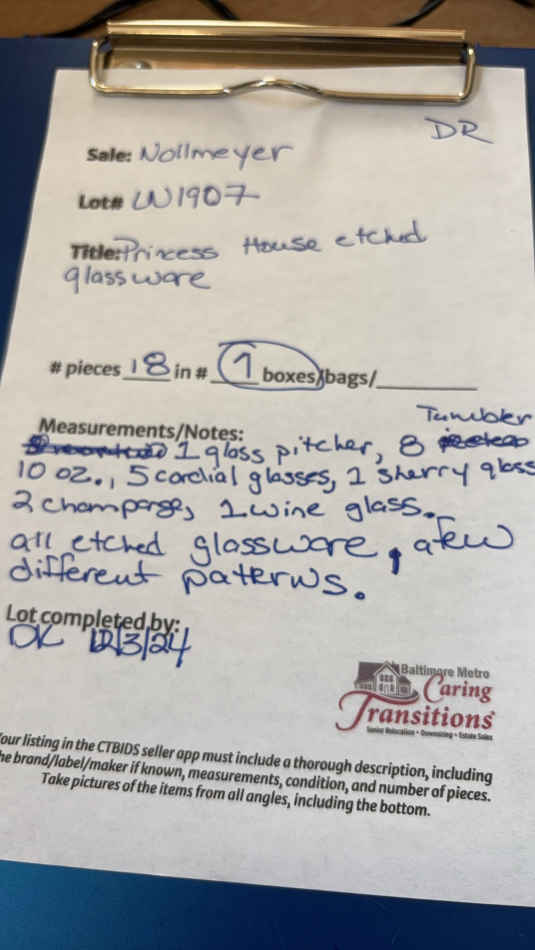 DR
Sale: Nollmeyer
Lot# LN1907
Title: Princess House etched
glassware
# pieces 18 in # 1 boxes/bags/
Tumbler
Measurements/Notes:
1 glass pitcher, 8
10 oz., 5 cordial glasses, 1 sherry glass
2 champange, 1 wine glass.
all etched glassware, a few
different paterns.
Lot completed by:
DK 12/3/24
Baltimore Metro
Caring
Transitions
Senior Relocation • Downsizing • Estate Sales
Your listing in the CTBIDS seller app must include a thorough description, including
the brand/label/maker if known, measurements, condition, and number of pieces.
Take pictures of the items from all angles, including the bottom.